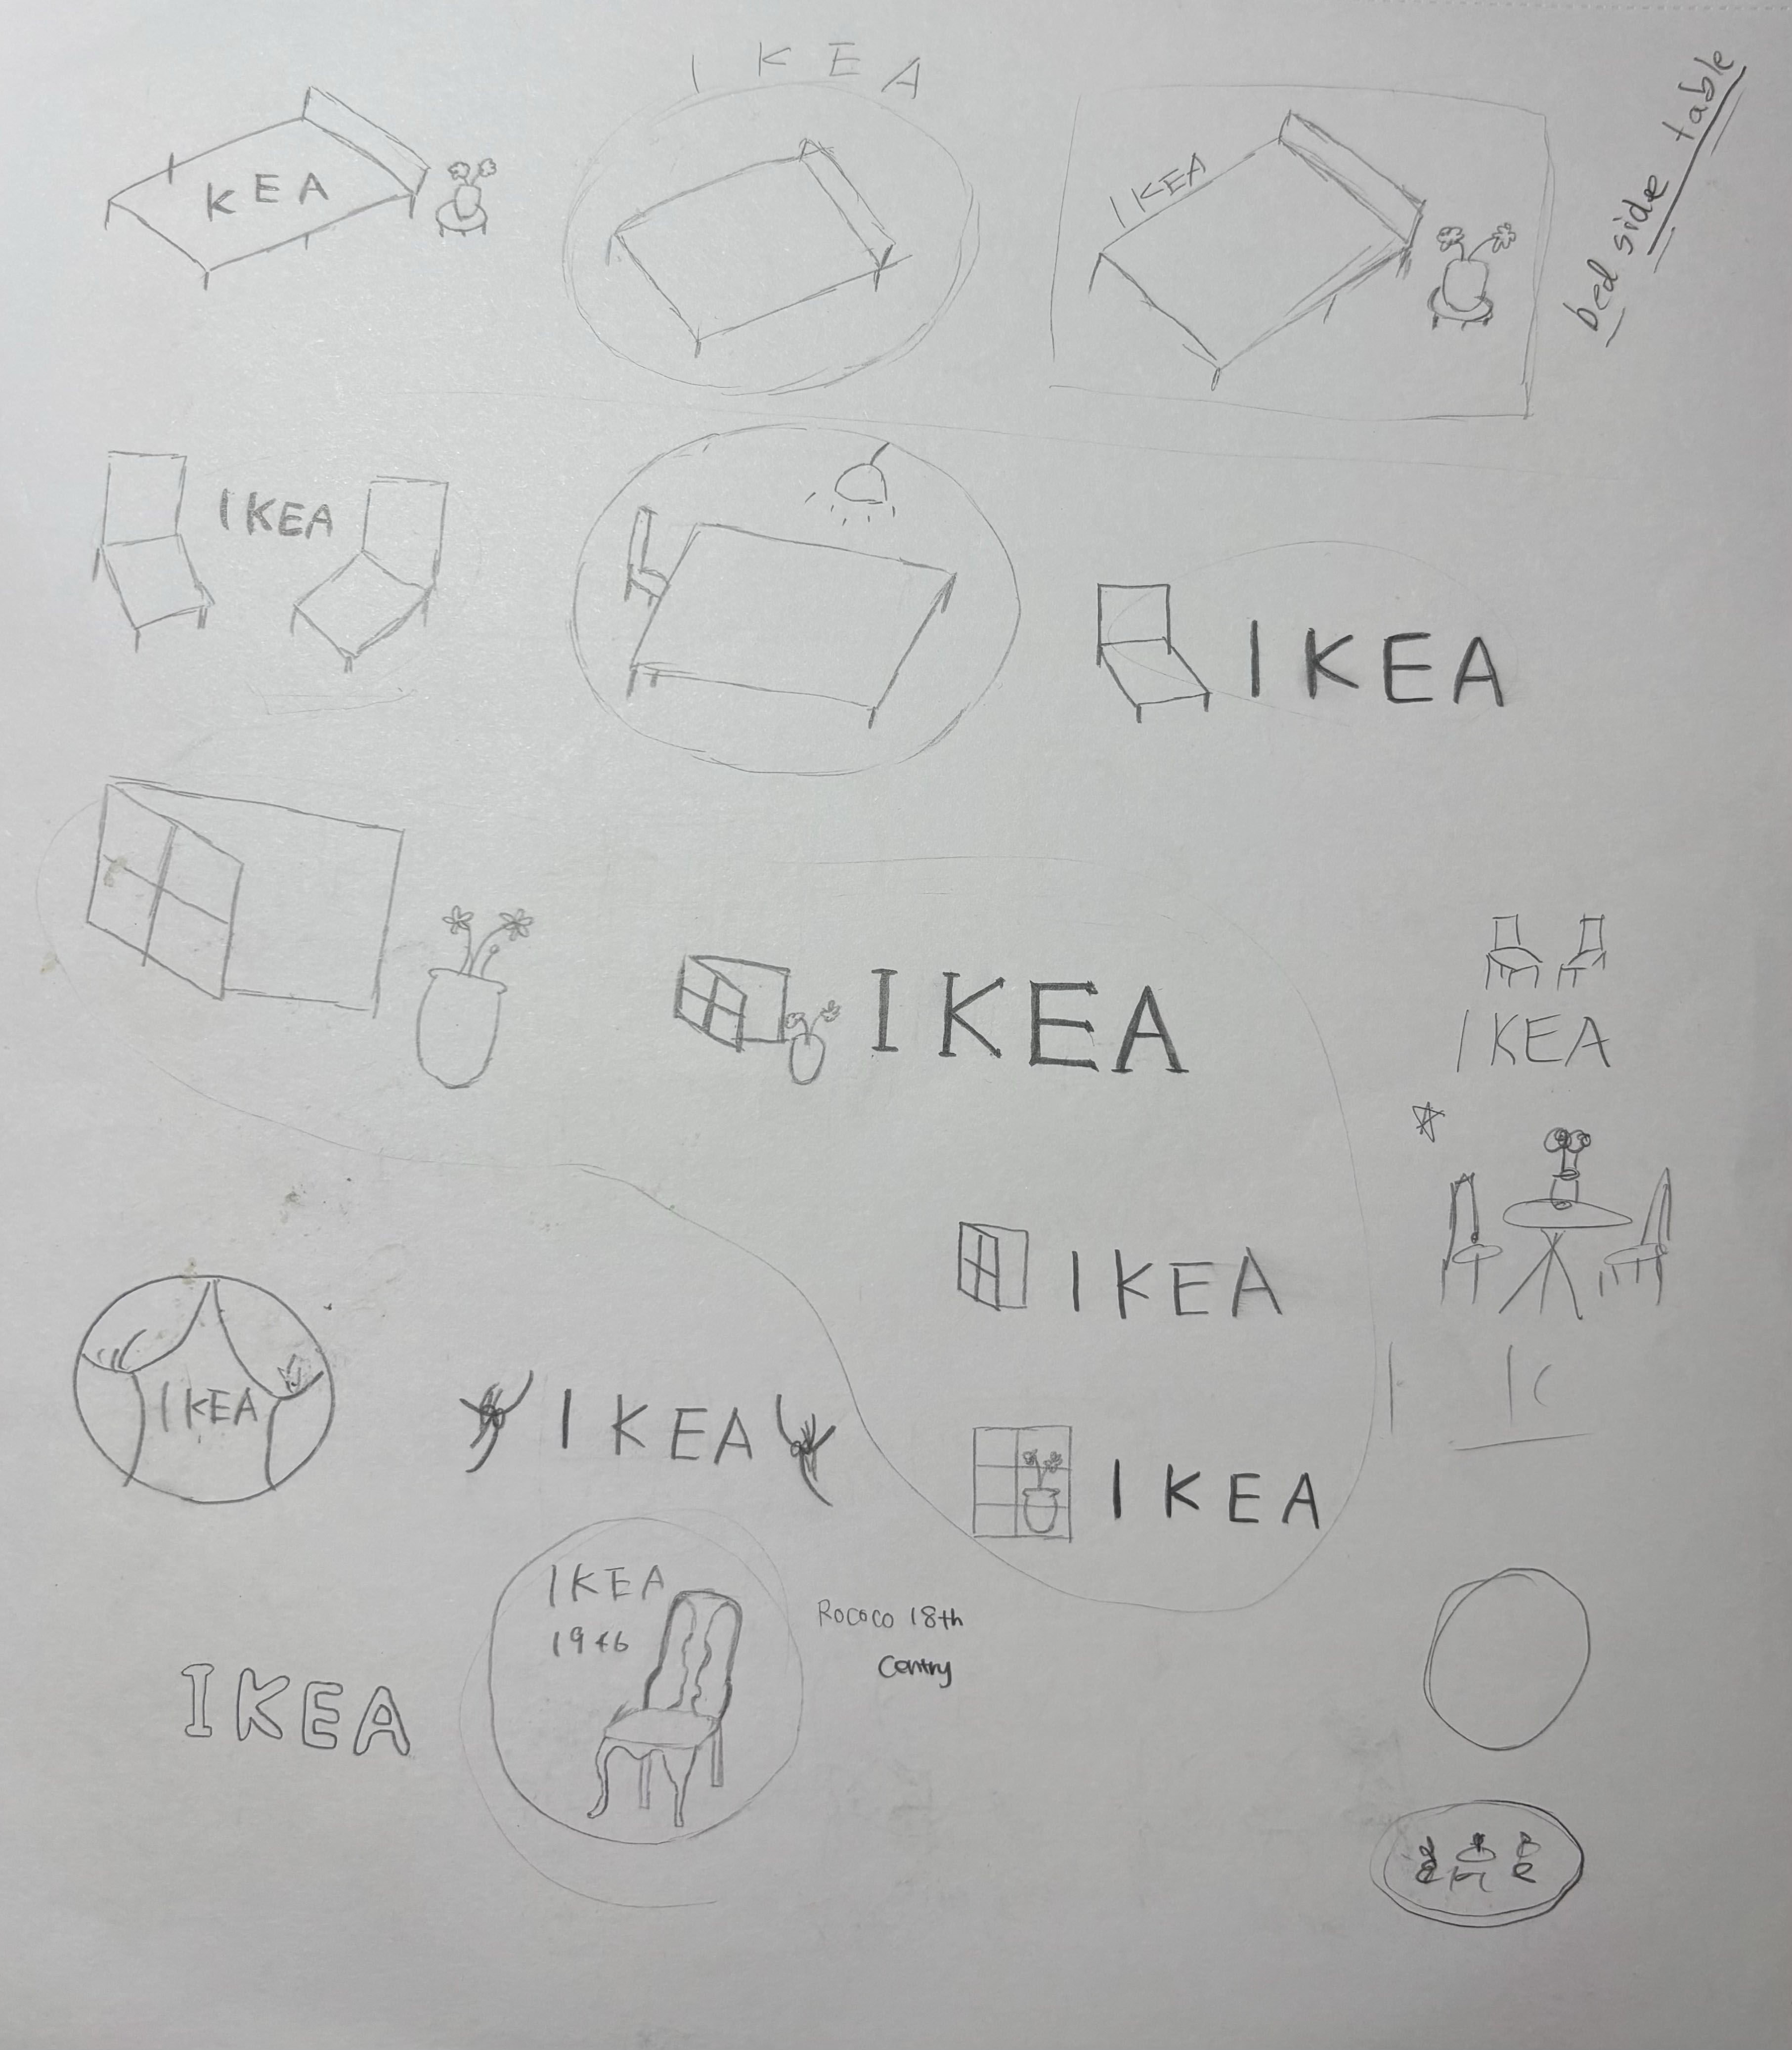 I K E A
KEA
IKEA
bed side table
IKEA
I K E A
I K E A
IKEA
I K E A
IKEA
I K E A
I K E A
IKEA
1946
Rococo 18th
Centry
IKEA